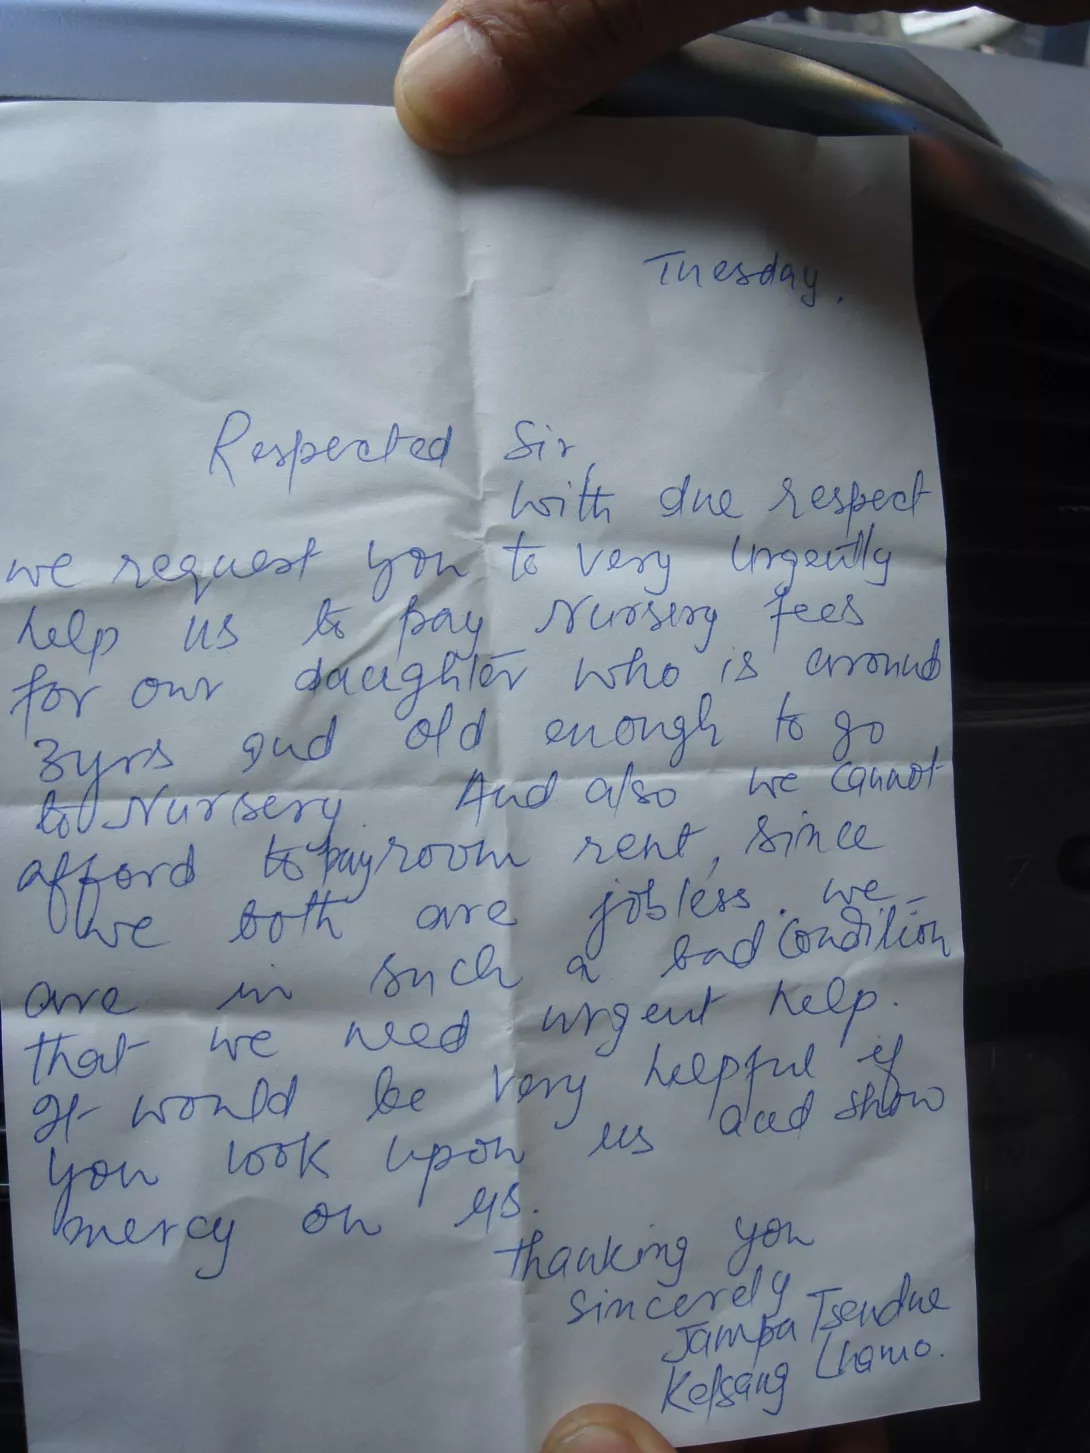 Tuesday.
Respected Sir,
With due respect
we request you to very Urgently
help us to pay Nursery fees
for our daughter who is around
3yrs and old enough to go
to Nursery. And also we cannot
afford to pay room rent, since
we both are jobless. we
are in such a bad condition
that we need urgent help.
It would be very helpful if
you look upon us and show
mercy on us.
Thanking you
Sincerely
Jampa Tsendue
Kelsang Lhamo.